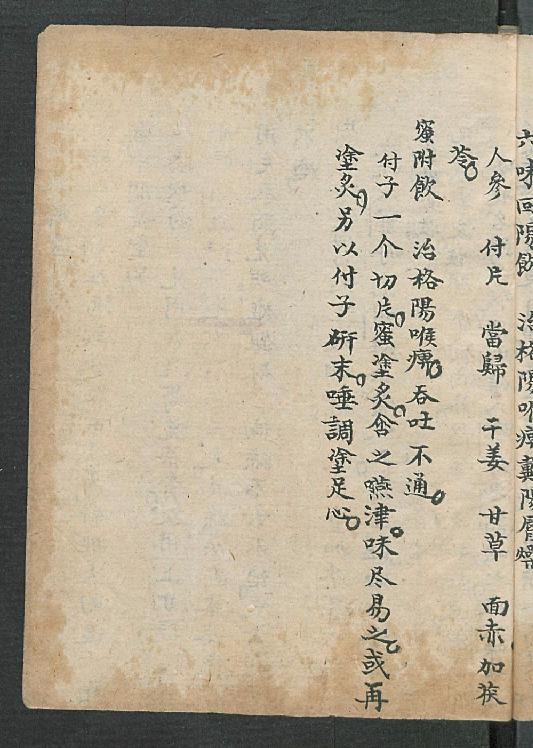 六味回陽飲 治格陽喉痺戴陽唇燥
人參 付片 當歸 干姜 甘草 面赤加茯
苓。
蜜附飲 治格陽喉痹。吞吐不通。
付子一个切片。蜜塗炙。含之嚥津。味尽易之。或再
塗炙。另以付子研末。唾調塗足心。